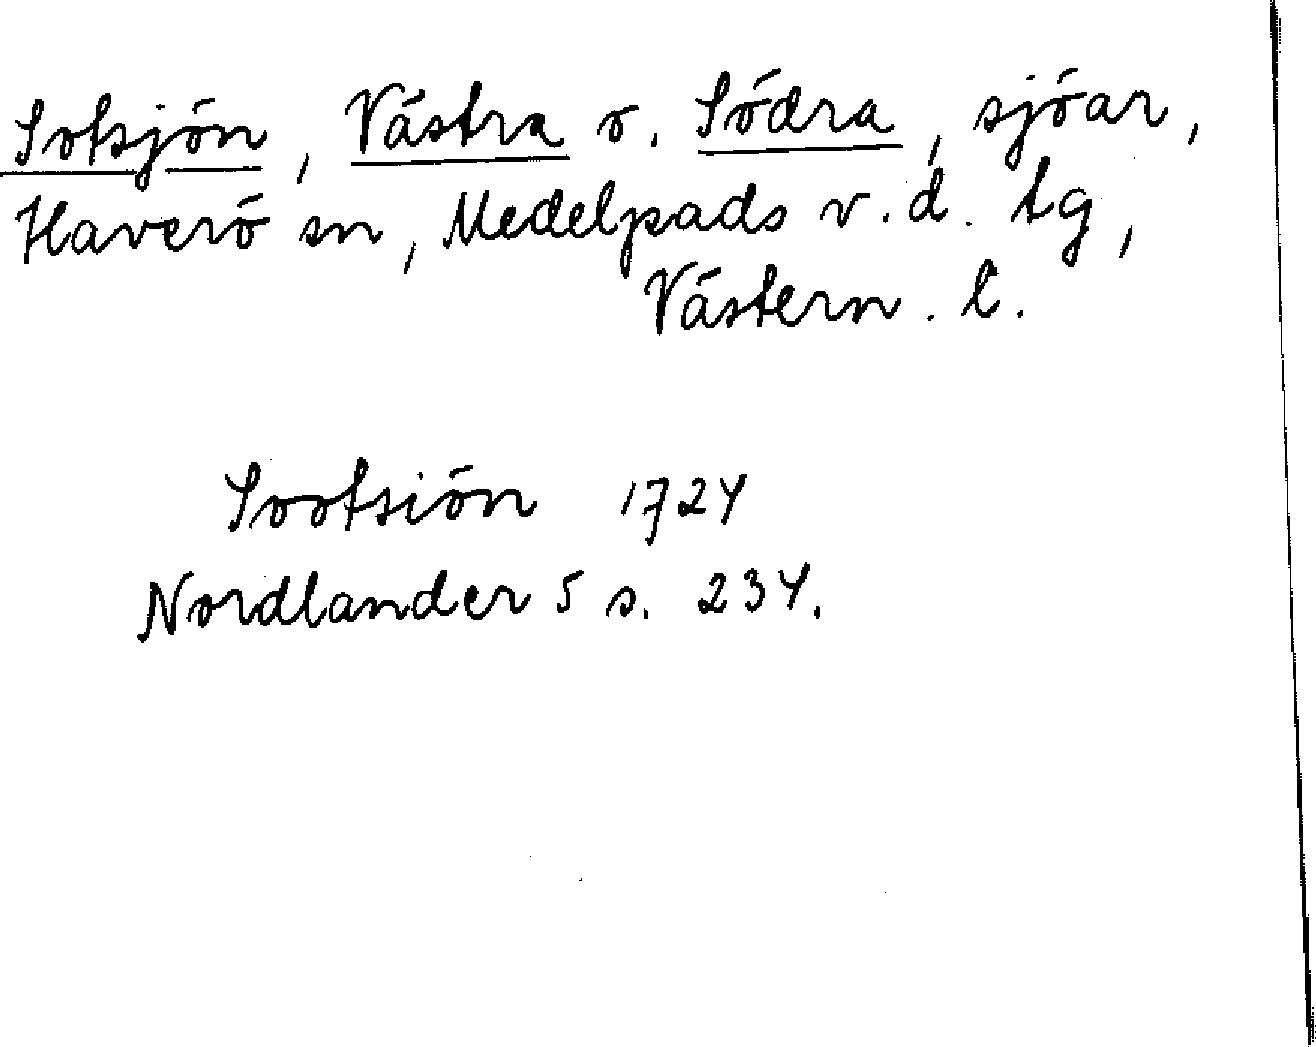 Sotsjön, Västra o. Södra, sjöar,
Haverö sn, Medelpads v. d. tg,
Västern. l.
Sootsiön 1724
Nordlander 5 s. 234.